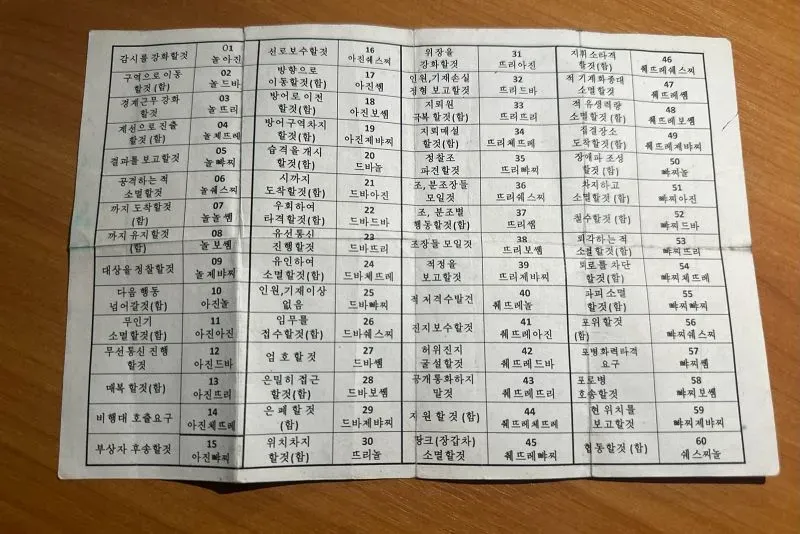 감시를 강화할것
01
놀아진
구역으로 이동
할것(함)
02
놀드바
경계근무 강화
할것
03
놀뜨리
계선으로 진출
할것(함)
04
놀체뜨레
결과를 보고할것
05
놀뺘찌
공격하는 적
소멸할것
06
놀쉐스찌
까지 도착할것
(함)
07
놀놀쎔
까지 유지할것
(함)
08
놀보쎔
대상을 정찰할것
09
놀제뱌찌
다음 행동
넘어갈것(함)
10
아진놀
무인기
소멸할것(함)
11
아진아진
무선통신 진행
할것
12
아진드바
매복 할것(함)
13
아진뜨리
비행대 호출요구
14
아진체뜨레
부상자 후송할것
15
아진뺘찌
선로보수할것
16
아진쉐스찌
방향으로
이동할것(함)
17
아진쎔
방어로 이전
할것(함)
18
아진보쎔
방어구역차지
할것(함)
19
아진제뱌찌
습격을 개시
할것(함)
20
드바놀
시까지
도착할것(함)
21
드바아진
우회하여
타격할것(함)
22
드바드바
유선통신
진행할것
23
드바뜨리
유인하여
소멸할것(함)
24
드바체뜨레
인원,기재이상
없음
25
드바뺘찌
임무를
접수할것(함)
26
드바쉐스찌
엄호 할것
27
드바쎔
은밀히 접근
할것(함)
28
드바보쎔
은폐 할것
(함)
29
드바제뱌찌
위치차지
할것(함)
30
뜨리놀
위장을
강화할것
31
뜨리아진
인원,기재손실
정형 보고할것
32
뜨리드바
지뢰원
극복 할것(함)
33
뜨리뜨리
지뢰매설
할것(함)
34
뜨리체뜨레
정찰조
파견할것
35
뜨리뺘찌
조, 분조장들
모일것
36
뜨리쉐스찌
조, 분조별
행동할것(함)
37
뜨리쎔
조장들 모일것
38
뜨리보쎔
적정을
보고할것
39
뜨리제뱌찌
적 저격수발견
40
췌뜨레놀
진지보수할것
41
췌뜨레아진
허위진지
굴설할것(함)
42
췌뜨레드바
공개통화하지
말것
43
췌뜨레뜨리
지원 할것(함)
44
췌뜨레체뜨레
땅크(장갑차)
소멸할것
45
췌뜨레뺘찌
지휘소타격
할것(함)
46
췌뜨레쉐스찌
적 기계화종대
소멸할것
47
췌뜨레쎔
적 유생력량
소멸할것(함)
48
췌뜨레보쎔
집결장소
도착할것(함)
49
췌뜨레제뱌찌
장애파 조성
할것(함)
50
뺘찌놀
차지하고
소멸할것(함)
51
뺘찌아진
철수할것(함)
52
뺘찌드바
퇴각하는 적
소멸할것(함)
53
뺘찌뜨리
퇴로를 차단
할것(함)
54
뺘찌체뜨레
파괴 소멸
할것(함)
55
뺘찌뺘찌
포위할것
(함)
56
뺘찌쉐스찌
포병화력타격
요구
57
뺘찌쎔
포로병
호송할것
58
뺘찌보쎔
현 위치를
보고할것
59
뺘찌제뱌찌
협동할것(함)
60
쉐스찌놀